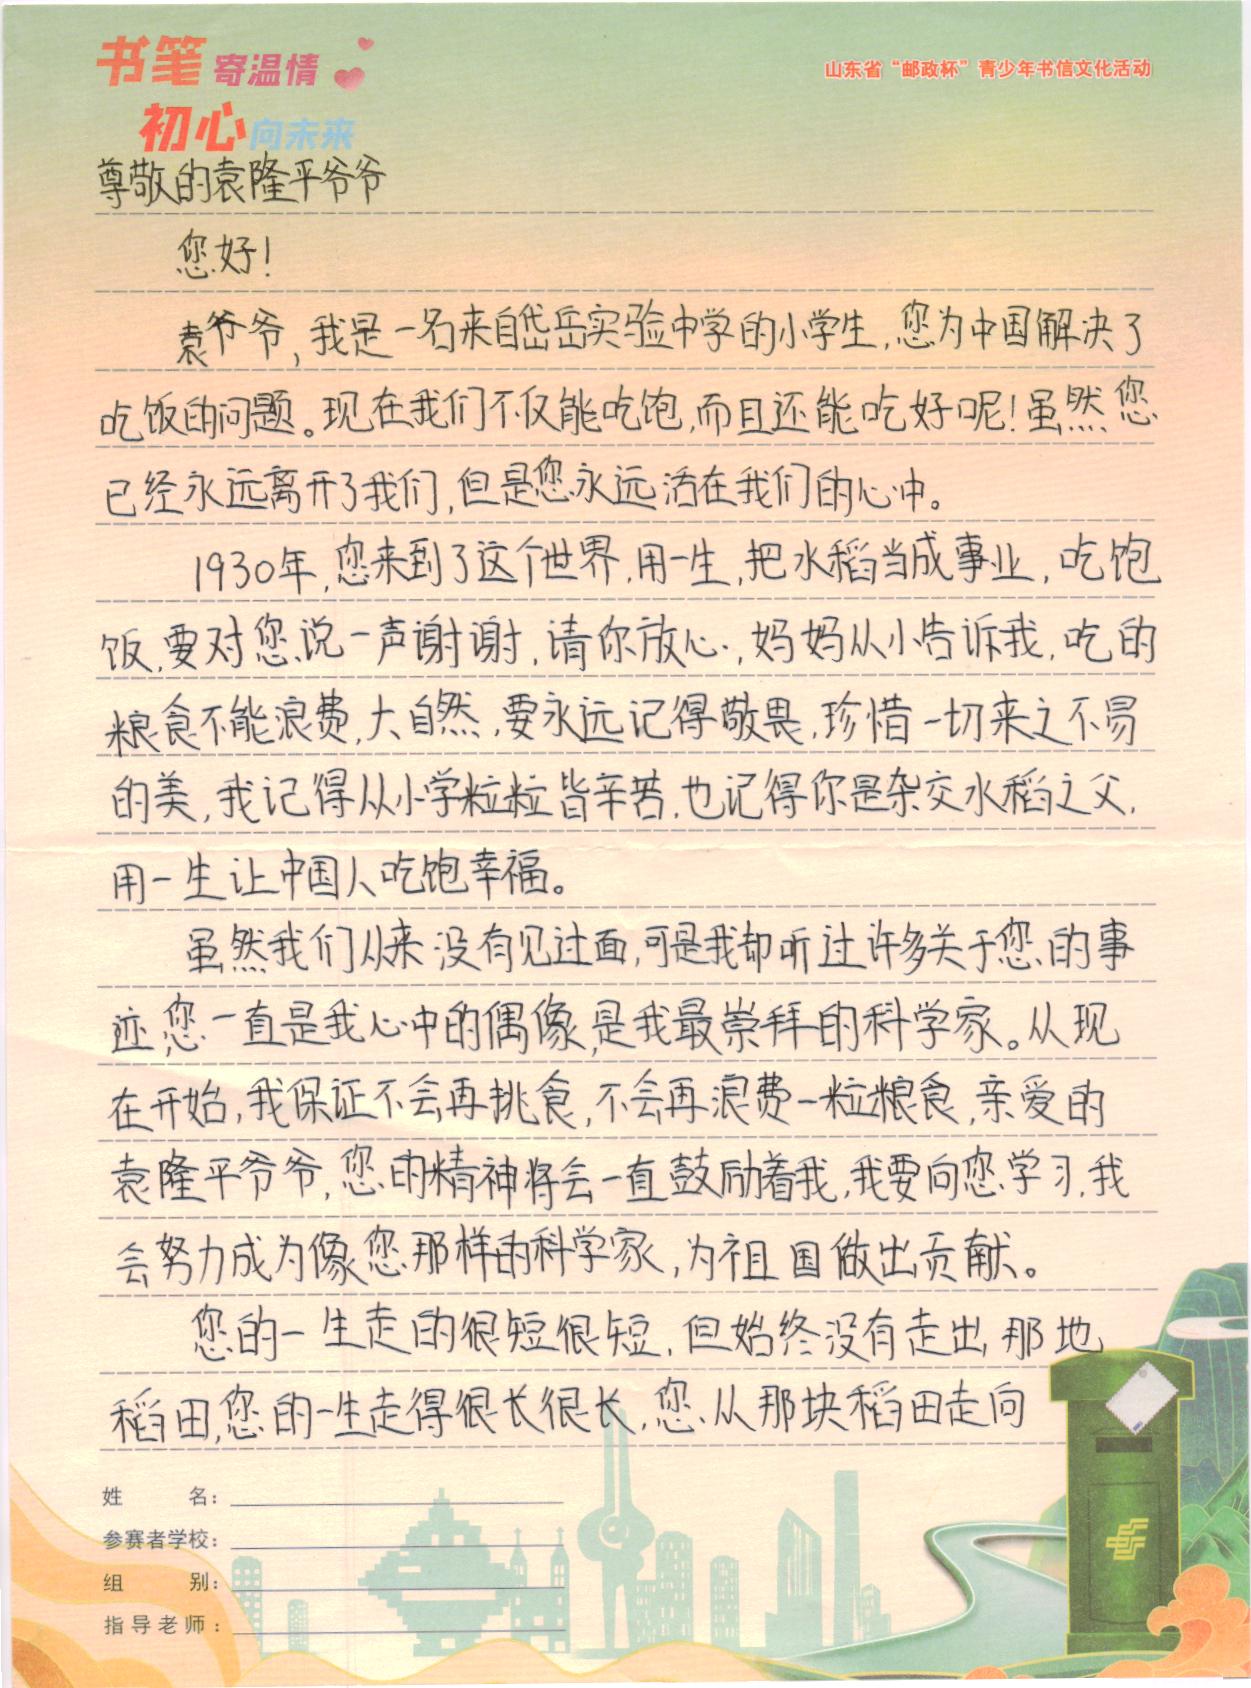 书笔寄温情
初心向未来
山东省“邮政杯”青少年书信文化活动
尊敬的袁隆平爷爷
您好！
袁爷爷，我是一名来自岱岳实验中学的小学生，您为中国解决了
吃饭的问题。现在我们不仅能吃饱，而且还能吃好呢！虽然您
已经永远离开了我们，但是您永远活在我们的心中。
1930年，您来到了这个世界，用一生，把水稻当成事业，吃饱
饭，要对您说一声谢谢，请你放心，妈妈从小告诉我，吃的
粮食不能浪费，大自然，要永远记得敬畏，珍惜一切来之不易
的美，我记得从小学粒粒皆辛苦，也记得你是杂交水稻之父，
用一生让中国人吃饱幸福。
虽然我们从来没有见过面，可是我却听过许多关于您的事
迹，您一直是我心中的偶像，是我最崇拜的科学家。从现
在开始，我保证不会再挑食，不会再浪费一粒粮食，亲爱的
袁隆平爷爷，您的精神将会一直鼓励着我，我要向您学习，我
会努力成为像您那样的科学家，为祖国做出贡献。
您的一生走的很短很短，但始终没有走出那地
稻田，您的一生走得很长很长，您从那块稻田走向
姓名：
参赛者学校：
组别：
指导老师：